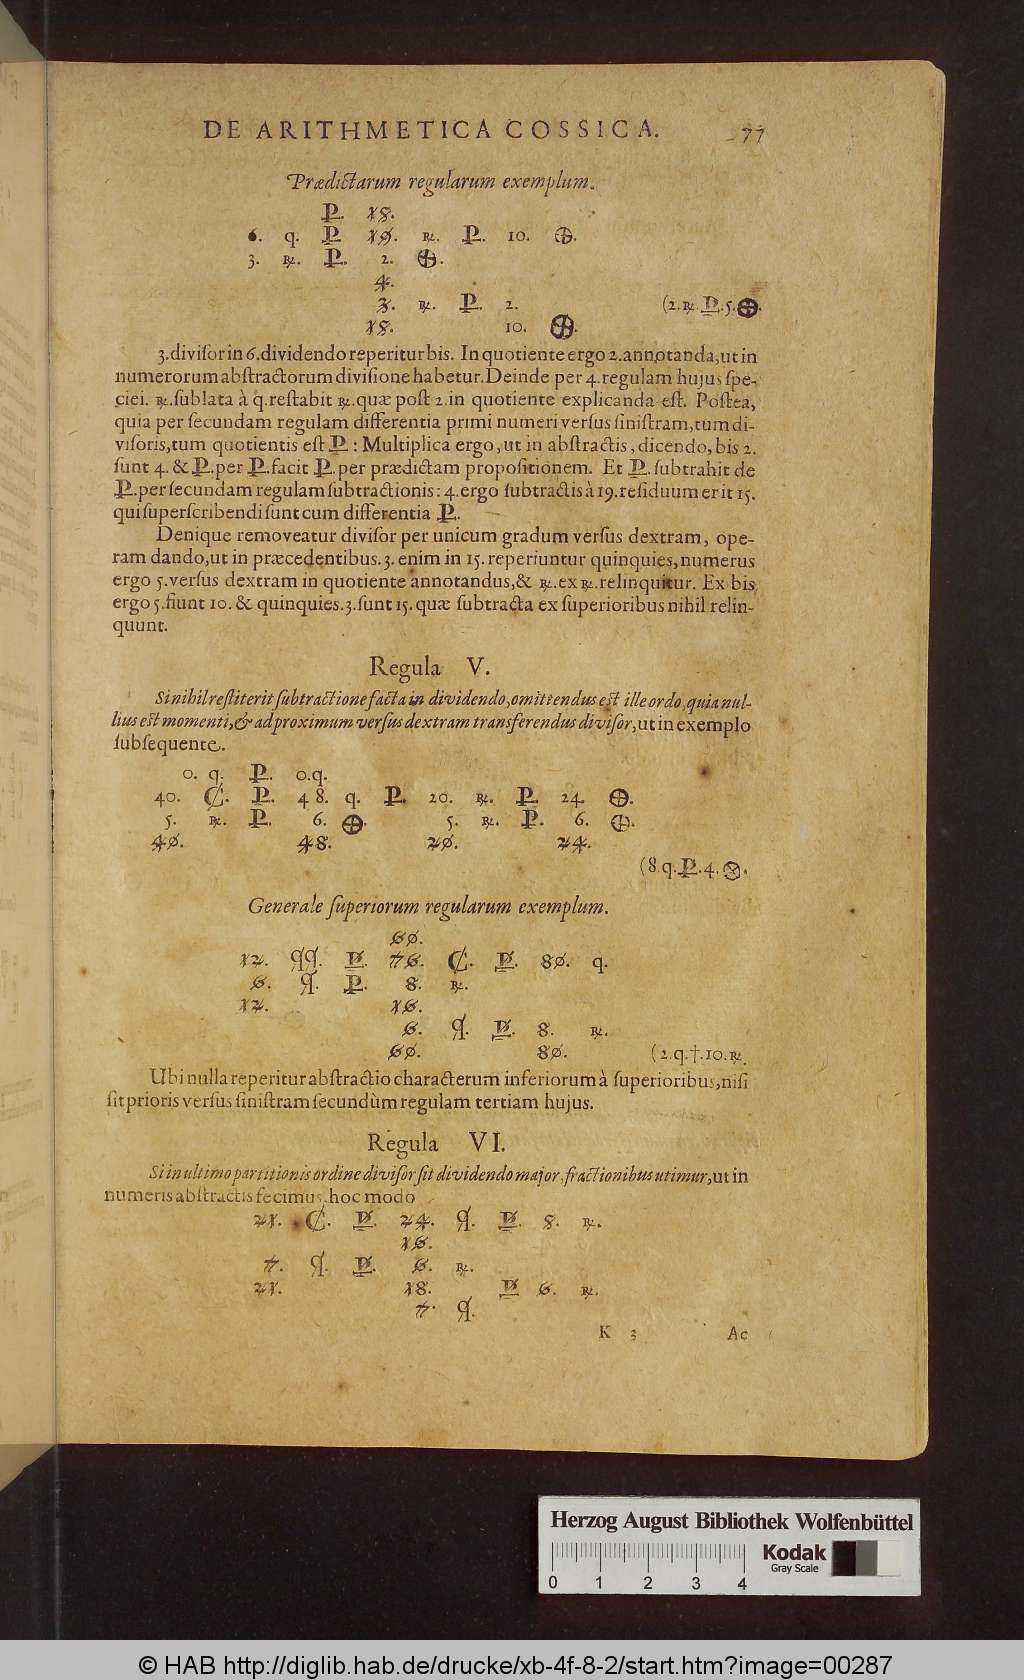 DE ARITHMETICA COSSICA. 77
Prædictarum regularum exemplum.
P. 18.
6. q. P 19. ℞. P. 10. ⊕.
3. ℞. P. 2. ⊕.
4.
3. ℞. P. 2. (2.℞.P.5.⊕.
18. 10. ⊕.
3.diviſor in 6.dividendo reperitur bis. In quotiente ergo 2.annotanda,ut in
numerorum abſtractorum diviſione habetur.Deinde per 4.regulam hujus ſpe-
ciei. ℞.ſublata à q.reſtabit ℞.quæ poſt 2.in quotiente explicanda eſt. Poſtea,
quia per ſecundam regulam differentia primi numeri verſus ſiniſtram,tum di-
viſoris,tum quotientis eſt P : Multiplica ergo,ut in abſtractis,dicendo,bis 2.
ſunt 4. & P.per P.facit P.per prædictam propoſitionem. Et P.ſubtrahit de
P.per ſecundam regulam ſubtractionis: 4.ergo ſubtractis à 19.reſiduum erit 15.
qui ſuperſcribendi ſunt cum differentia P.
Denique removeatur diviſor per unicum gradum verſus dextram, ope-
ram dando,ut in præcedentibus.3.enim in 15.reperiuntur quinquies,numerus
ergo 5.verſus dextram in quotiente annotandus,& ℞.ex ℞.relinquitur. Ex bis
ergo 5.fiunt 10. & quinquies.3.ſunt 15.quæ ſubtracta ex ſuperioribus nihil relin-
quunt.
Regula V.
Si nihil reſtiterit ſubtractione facta in dividendo,omittendus eſt ille ordo,quia nul-
lius eſt momenti,& ad proximum verſus dextram transferendus diviſor,ut in exemplo
ſubſequente.
0. q. P. 0.q.
40. ₵. P. 48. q. P. 20. ℞. P 24. ⊕.
5. ℞. P. 6. ⊕. 5. ℞. P. 6. ⊕.
40. 48. 20. 24.
(8.q.P.4.⊗.
Generale ſuperiorum regularum exemplum.
60.
12. qq. P. 76. ₵. P. 80. q.
6. q. P. 8. ℞.
12. 16.
6. q. P. 8. ℞.
60. 80. (2.q.†.10.℞.
Ubi nulla reperitur abſtractio characterum inferiorum à ſuperioribus,niſi
ſit prioris verſus ſiniſtram ſecundùm regulam tertiam hujus.
Regula VI.
Si in ultimo partitionis ordine diviſor ſit dividendo major,fractionibus utimur,ut in
numeris abſtractis fecimus,hoc modo
21. ₵. P. 24. q. P. 8. ℞.
16.
7. q. P. 6. ℞.
21. 18. P 6. ℞.
7. q.
K 3 Ac
Herzog August Bibliothek Wolfenbüttel
Kodak
Gray Scale
0 1 2 3 4
© HAB http://diglib.hab.de/drucke/xb-4f-8-2/start.htm?image=00287